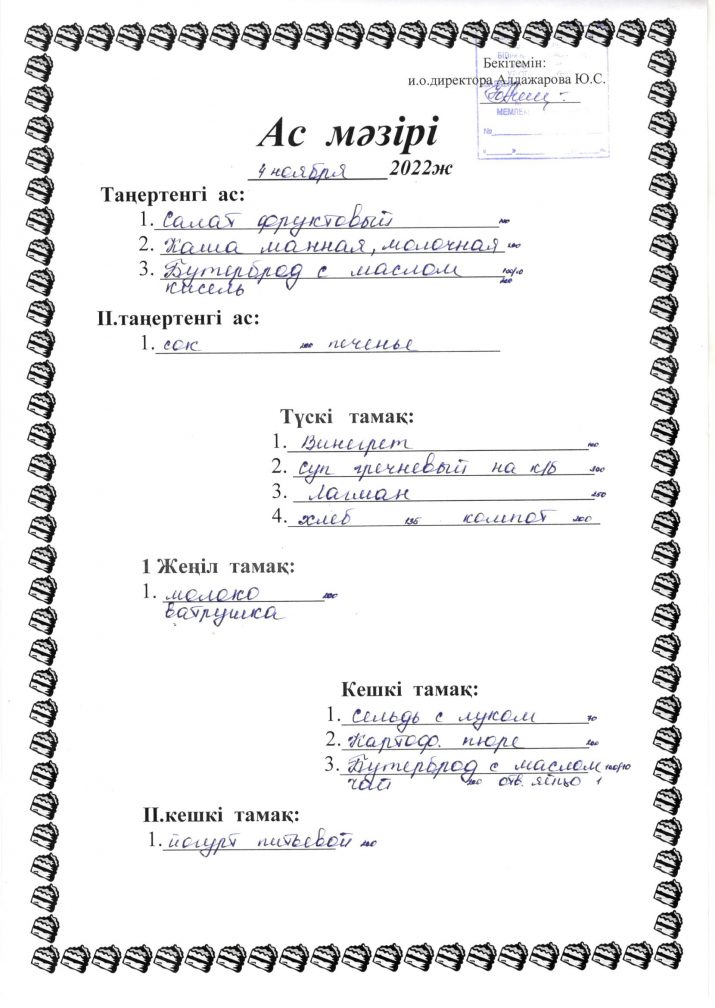 Бекітемін:
и.о.директора Алдажарова Ю.С.
МЕМЛЕК
№
Ас мәзірі
4 ноября 2022ж
Таңертенгі ас:
1. Салат фруктовый 100
2. Каша манная, молочная 200
3. Бутерброд с маслом 100/10
кисель 200
II.таңертенгі ас:
1. сок 200 печенье
Түскі тамақ:
1. Винегрет 100
2. Суп гречневый на к/б 300
3. Лагман 250
4. хлеб 135 компот 200
1 Жеңіл тамақ:
1. молоко 200
ватрушка
Кешкі тамақ:
1. Сельдь с луком 70
2. Картоф. пюре 200
3. Бутерброд с маслом 100/10
чай 200 отв. яйцо 1
II.кешкі тамақ:
1. йогурт питьевой 200